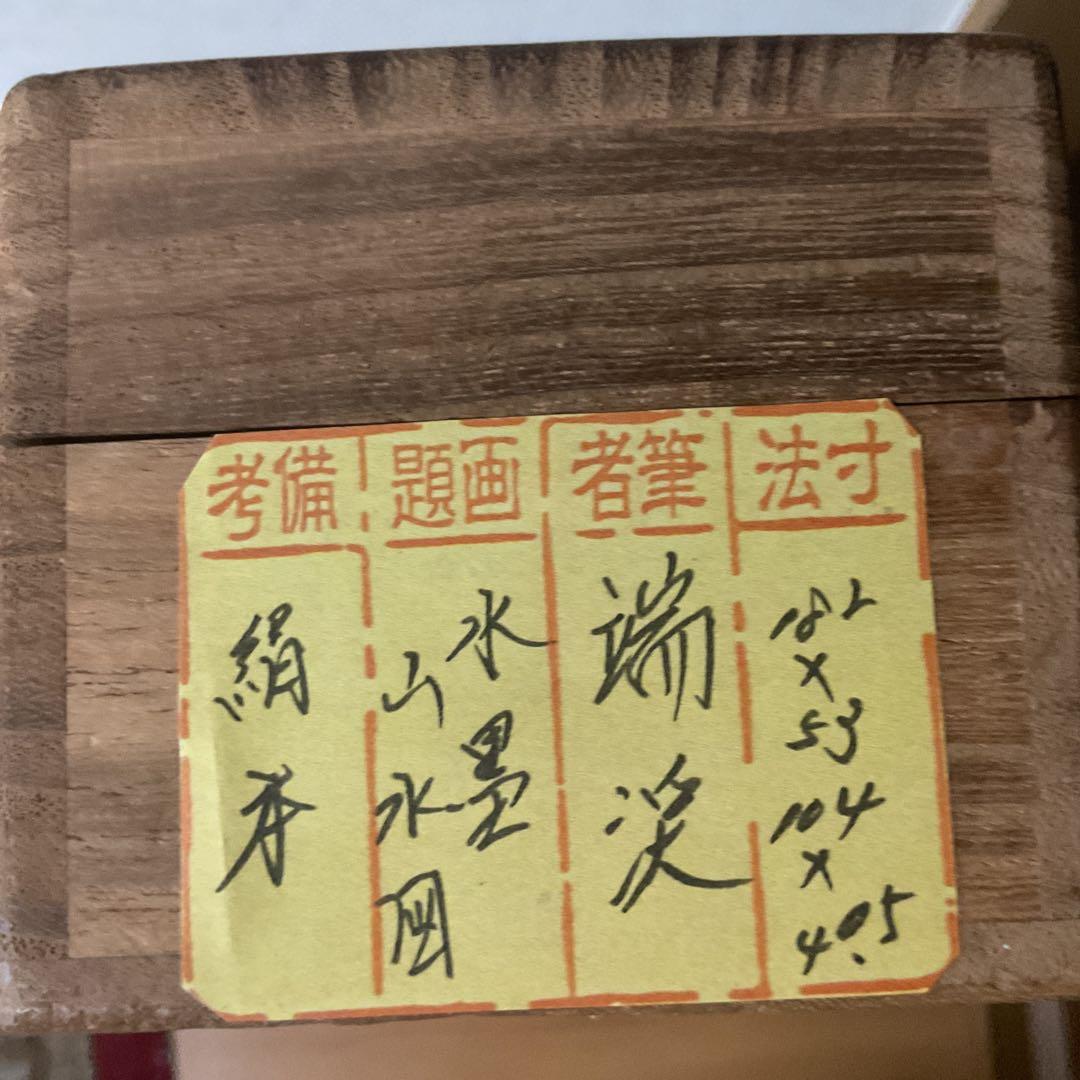 寸法
182
×
53
104
×
40.5
筆者
端渓
画題
水墨
山水図
備考
絹本